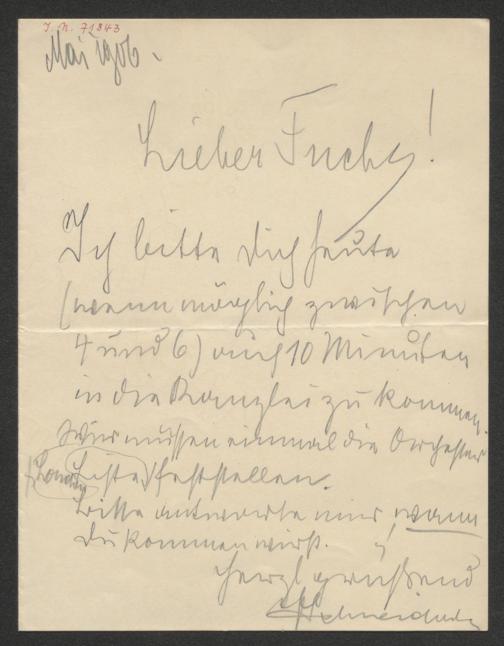 I. N. 71843
Mai 1906.
Lieber Fuchs!
Ich bitte Dich heute
(wenn möglich zwischen
4 und 6) auf 10 Minuten
in die Kanzlei zu kommen.
Wir müssen einmal die Orchester
Liste feststellen.
Bitte antworte mir, wann
Du kommen wirst.
Herzl grüßend